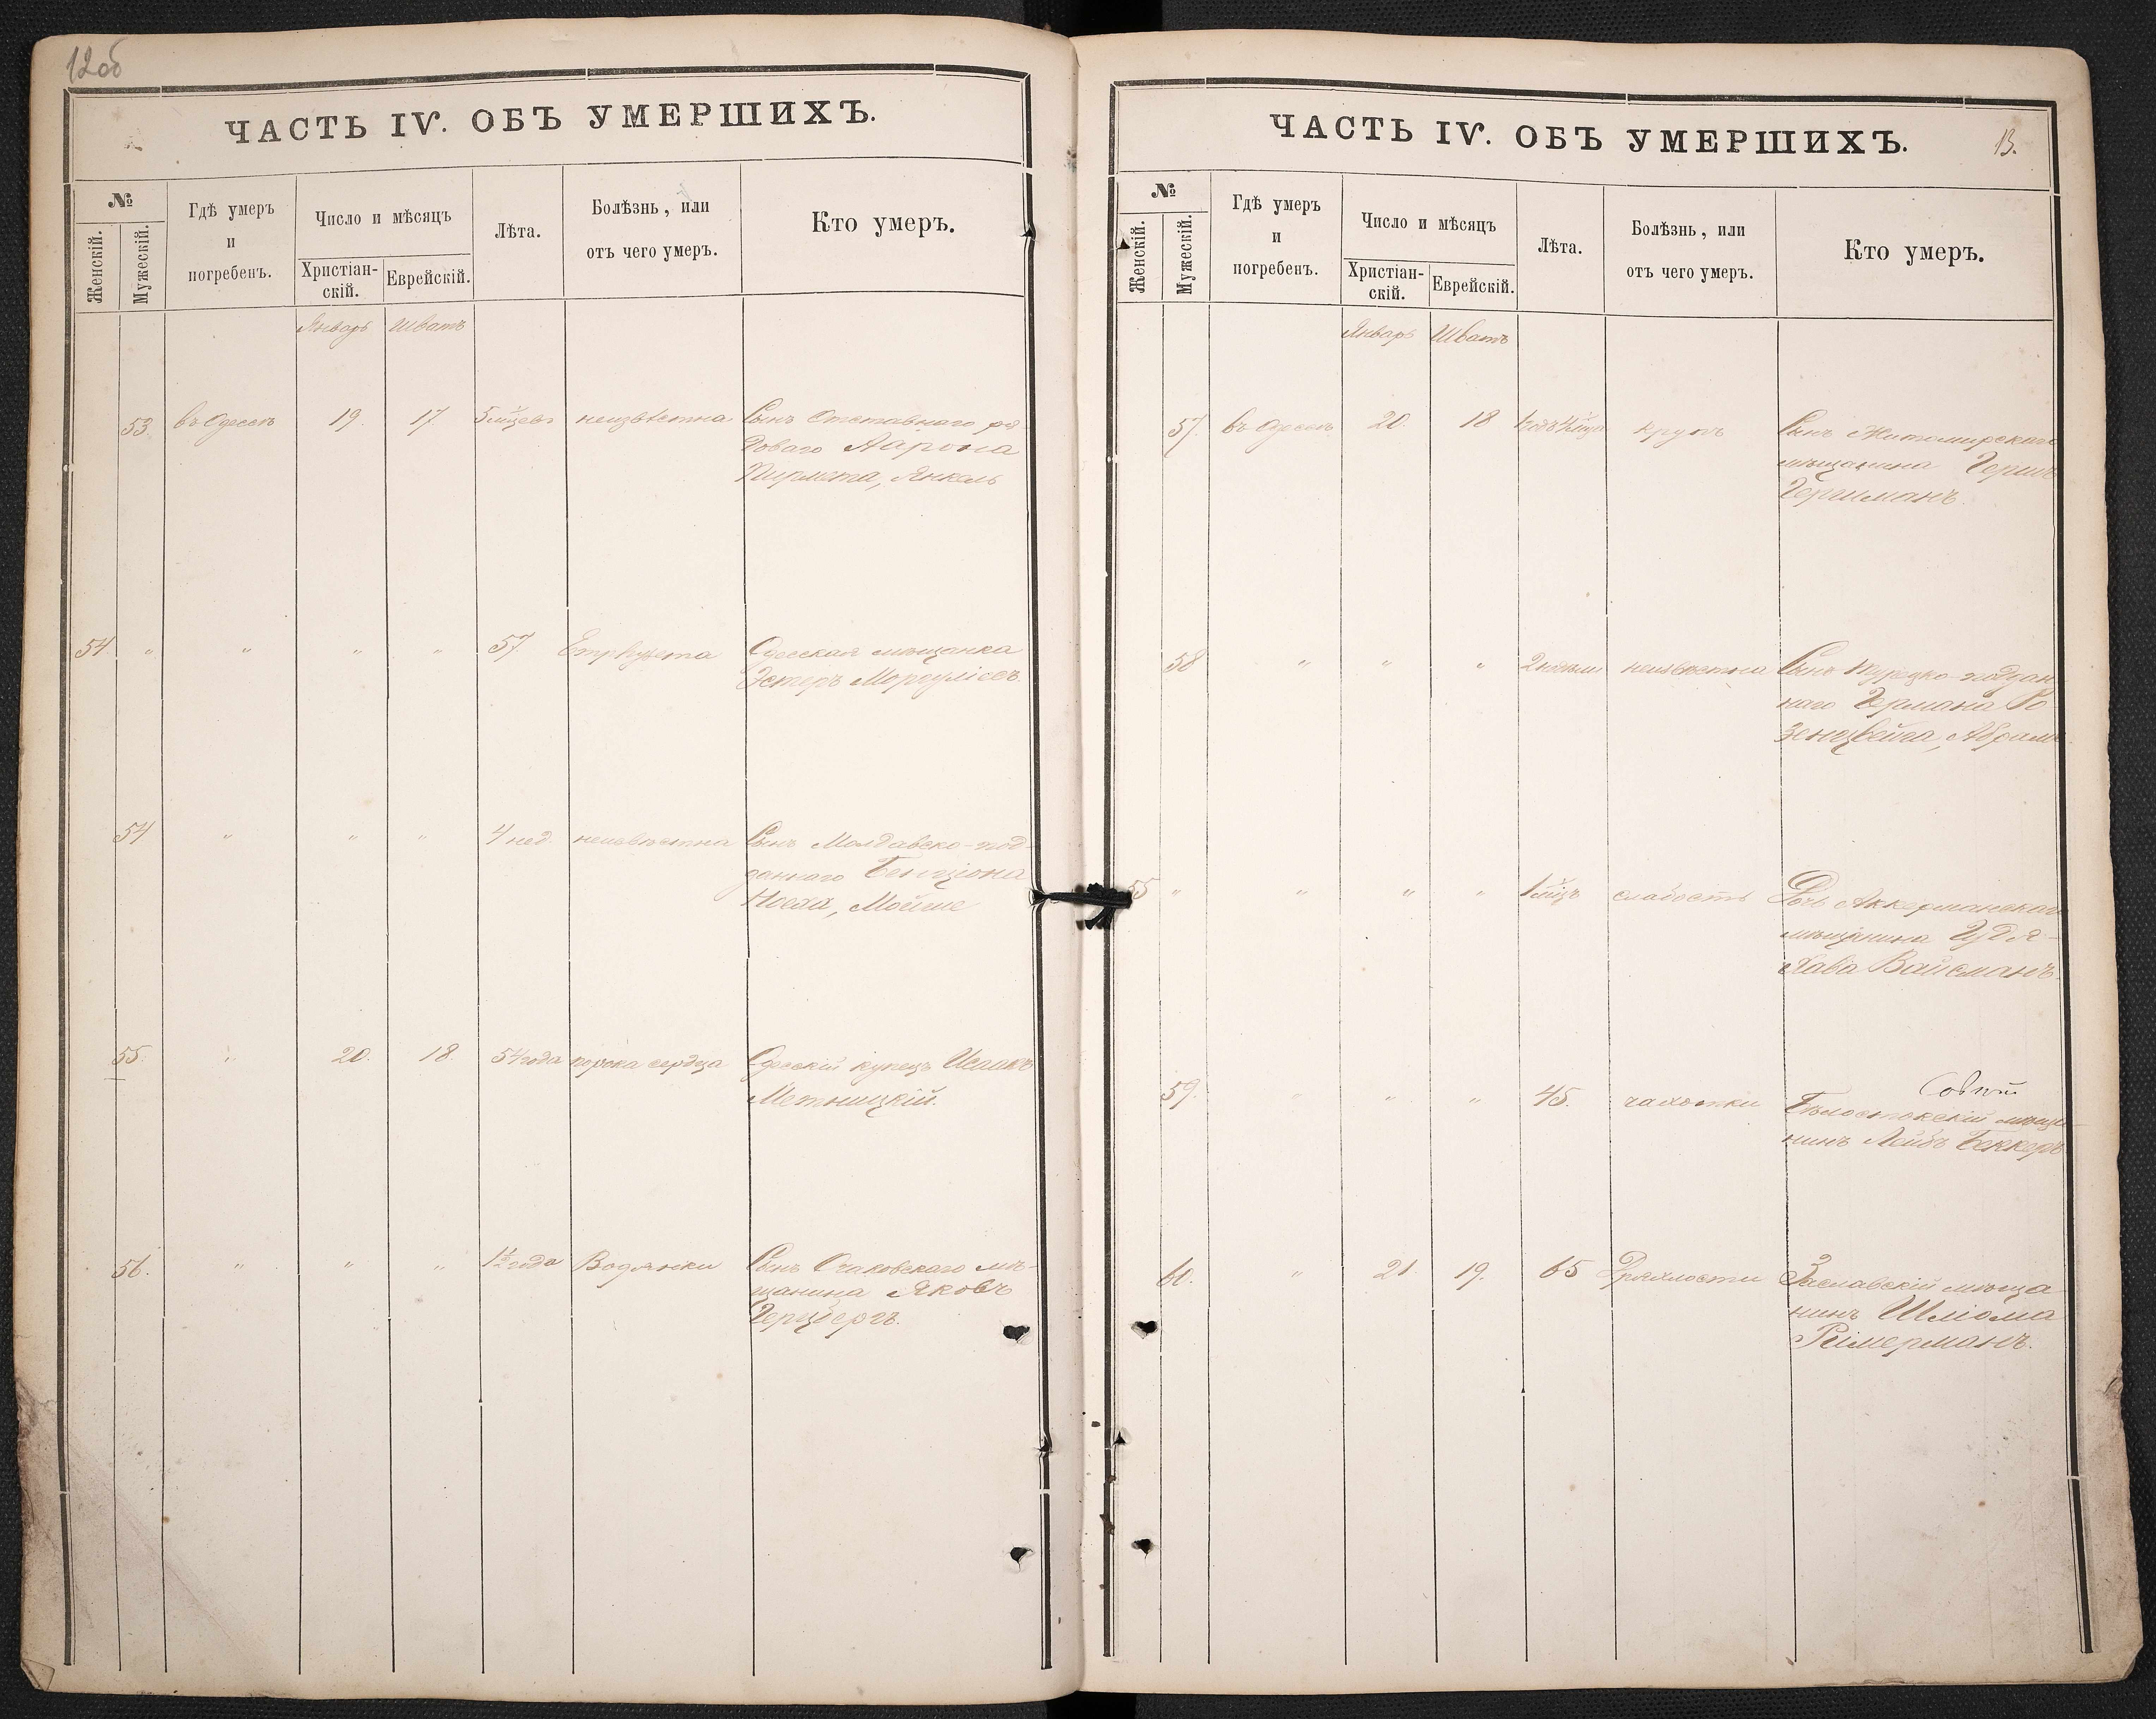 12об
ЧАСТЬ IV. ОБЪ УМЕРШИХЪ.
№
Женскій.
Мужескій.
Гдѣ умеръ
и
погребенъ.
Число и мѣсяцъ
Христіан-
скій.
Еврейскій.
Лѣта.
Болѣзнь, или
отъ чего умеръ.
Кто умеръ.
Январь Шватъ
53. въ Одессѣ 19. 17. 5 мѣцевъ неизвѣстна Сынъ Отставнаго ря-
доваго Аарона
Пирмета, Янкель
54 " " " " 57 Одесская мѣщанка
Эстеръ Моргулісъ.
54 " " " 4 нед. неизвѣстна Сынъ Молдавско-под-
даннаго Бенціона
Ноеха, Мойше
55. " 20. 18. 54 года порока сердца Одесскій купецъ Исаакъ
Метницкій.
56. " " " 1½ года Водянки Сынъ Очаковскаго мѣ-
щанина Яковъ
Герцбергъ.
ЧАСТЬ IV. ОБЪ УМЕРШИХЪ.
13.
№
Женскій.
Мужескій.
Гдѣ умеръ
и
погребенъ.
Число и мѣсяцъ
Христіан-
скій.
Еврейскій.
Лѣта.
Болѣзнь, или
отъ чего умеръ.
Кто умеръ.
Январь Шватъ
57. въ Одессѣ 20. 18 крупъ Сынъ Житомирскаго
мѣщанина Гершъ
Гершманъ.
58 " " " 2 недѣли неизвѣстна Сынъ Турецко-поддан
наго Германа Ро
зенцвейга, Абрамъ
55 " " " " 1 мѣцъ слабость Дочь Аккерманскаго
мѣщанина
Хава Вайсманъ.
59. " " " 45. чахотки
Бѣлостокскій мѣща-
нинъ Лейбъ Беккеръ
60. " 21. 19. 65 Дряхлости Заславскій мѣща
нинъ Шлома
Римерманъ.